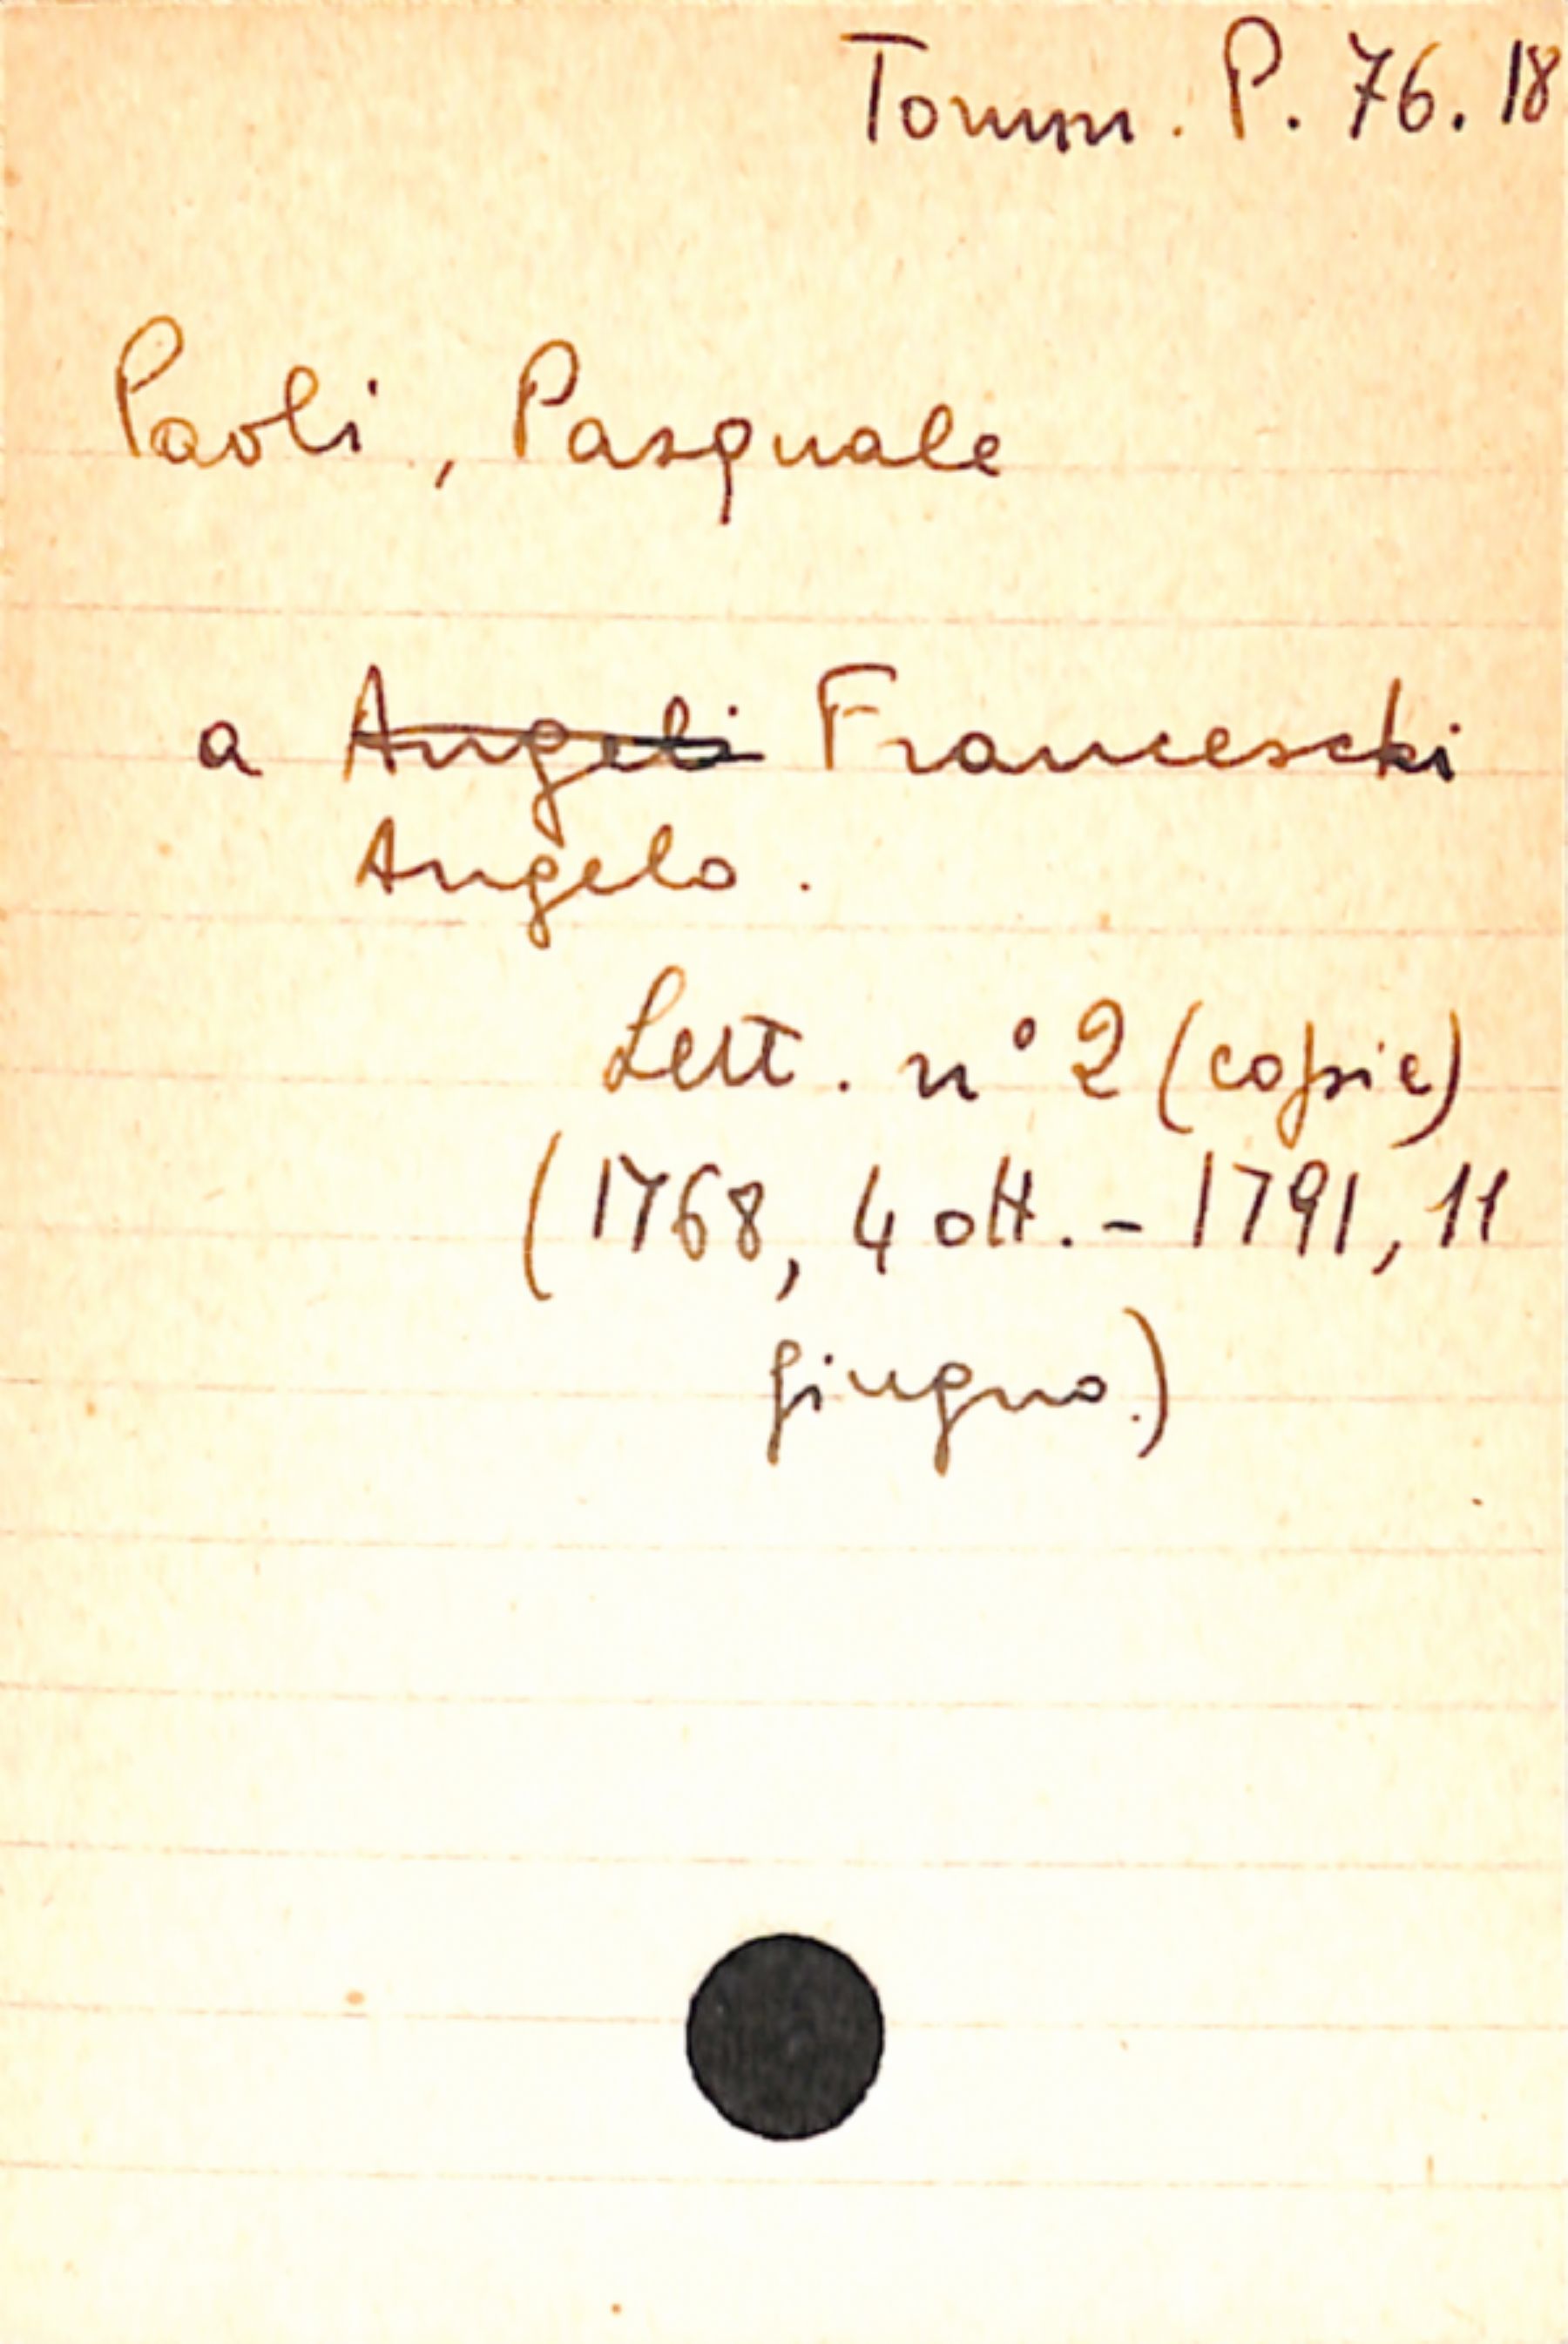 Tomm. P. 76. 18
Paoli, Pasquale
a Angeli Franceschi
Angelo.
Lett. n° 2 (copie)
(1768, 4 ott. - 1791, 11
giugno.)